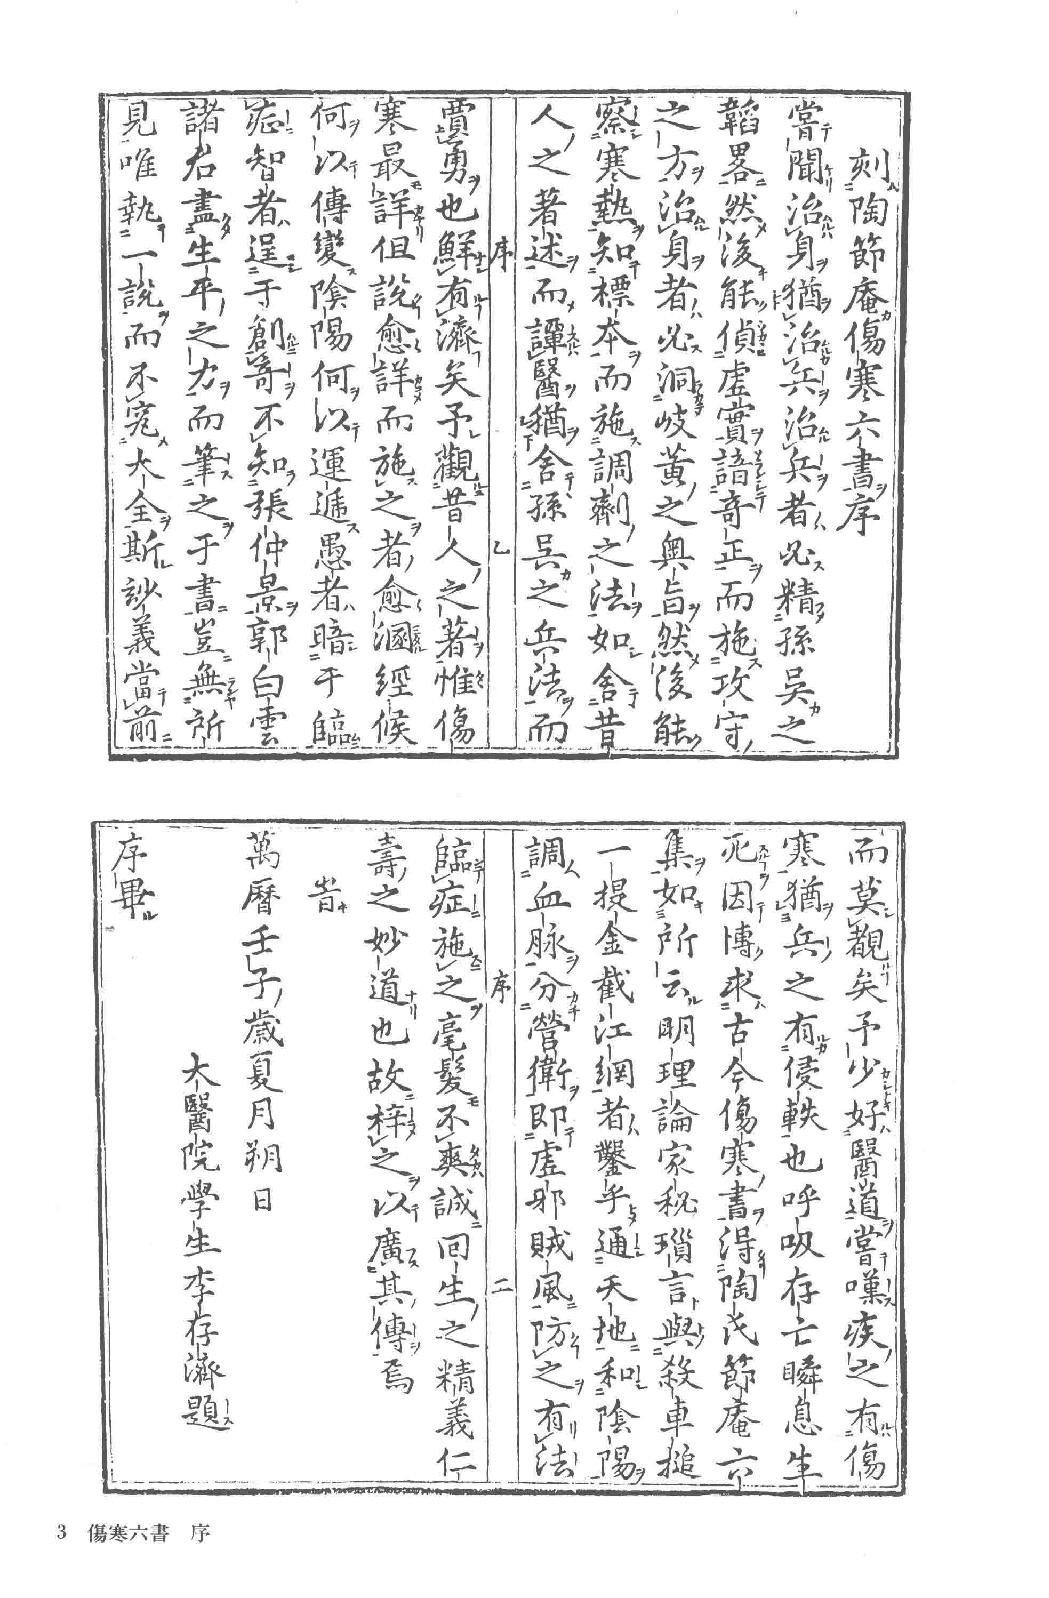 刻陶節庵傷寒六書序
嘗聞治身猶治兵治兵者必精孫吳之
韜畧然後能偵虛實諳竒正而施攻守
之方治身者必洞岐黃之奧旨然後能
察寒熱知標本而施調劑之法如舍昔
人之著述而譚醫猶舍孫吳之兵法而
序 乙
賈勇也鮮有濟矣予觀昔人之著惟傷
寒最詳但說愈詳而施之者愈溷經候
何以傳變陰陽何以運遞愚者暗于臨
症智者逞于創竒不知張仲景郭白雲
諸君盡生平之力而筆之于書豈無所
見唯執一說而不究大全斯玅義當前
而莫覩矣予少好醫道嘗嘆疾之有傷
寒猶兵之有侵軼也呼吸存亡瞬息生
死因博求古今傷寒書得陶氏節庵六
集如所云明理論家秘瑣言與殺車槌
一提金截江網者鑿乎通天地和陰陽
調血脉分營衛即虛邪賊風防之有法
序 二
臨症施之毫髮不爽誠回生之精義仁
壽之妙道也故梓之以廣其傳焉
旹
萬曆壬子歲夏月朔日
太醫院學生李存濟題
序畢
3 傷寒六書 序